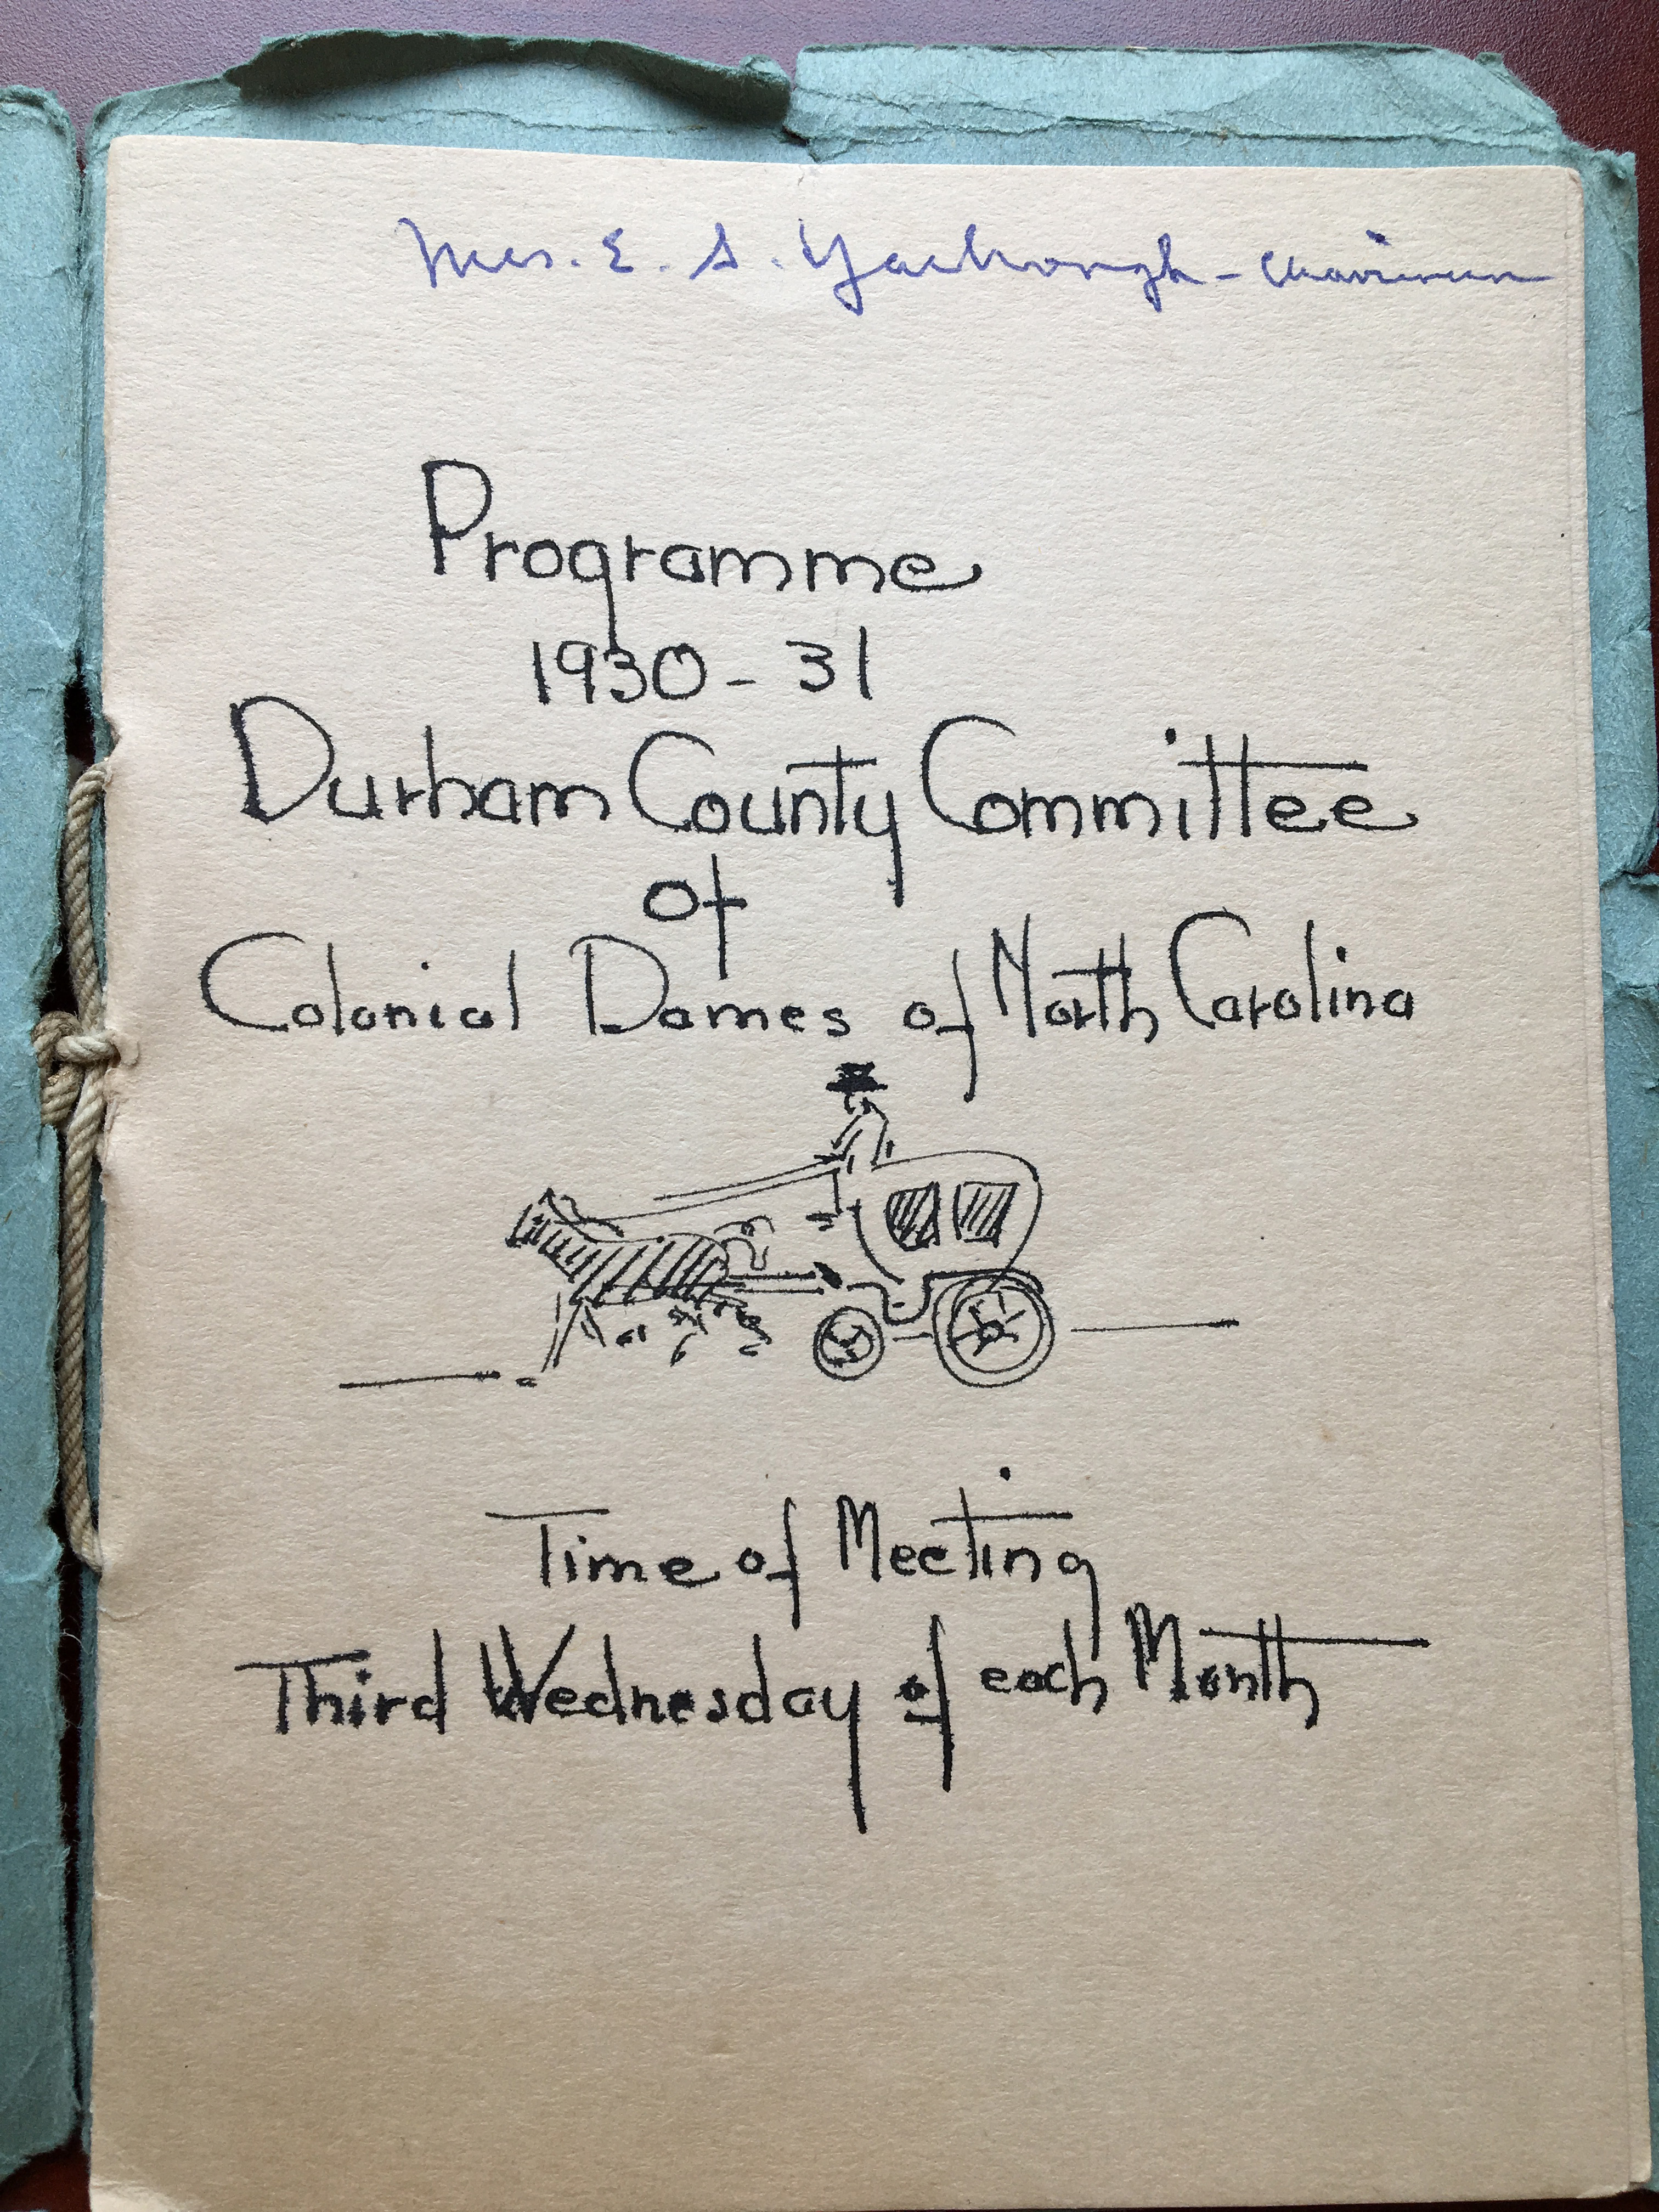 Mrs. E. S. Yarbrough - Chairman
Programme
1930 - 31
Durham County Committee
of
Colonial Dames of North Carolina
Time of Meeting
Third Wednesday of each Month